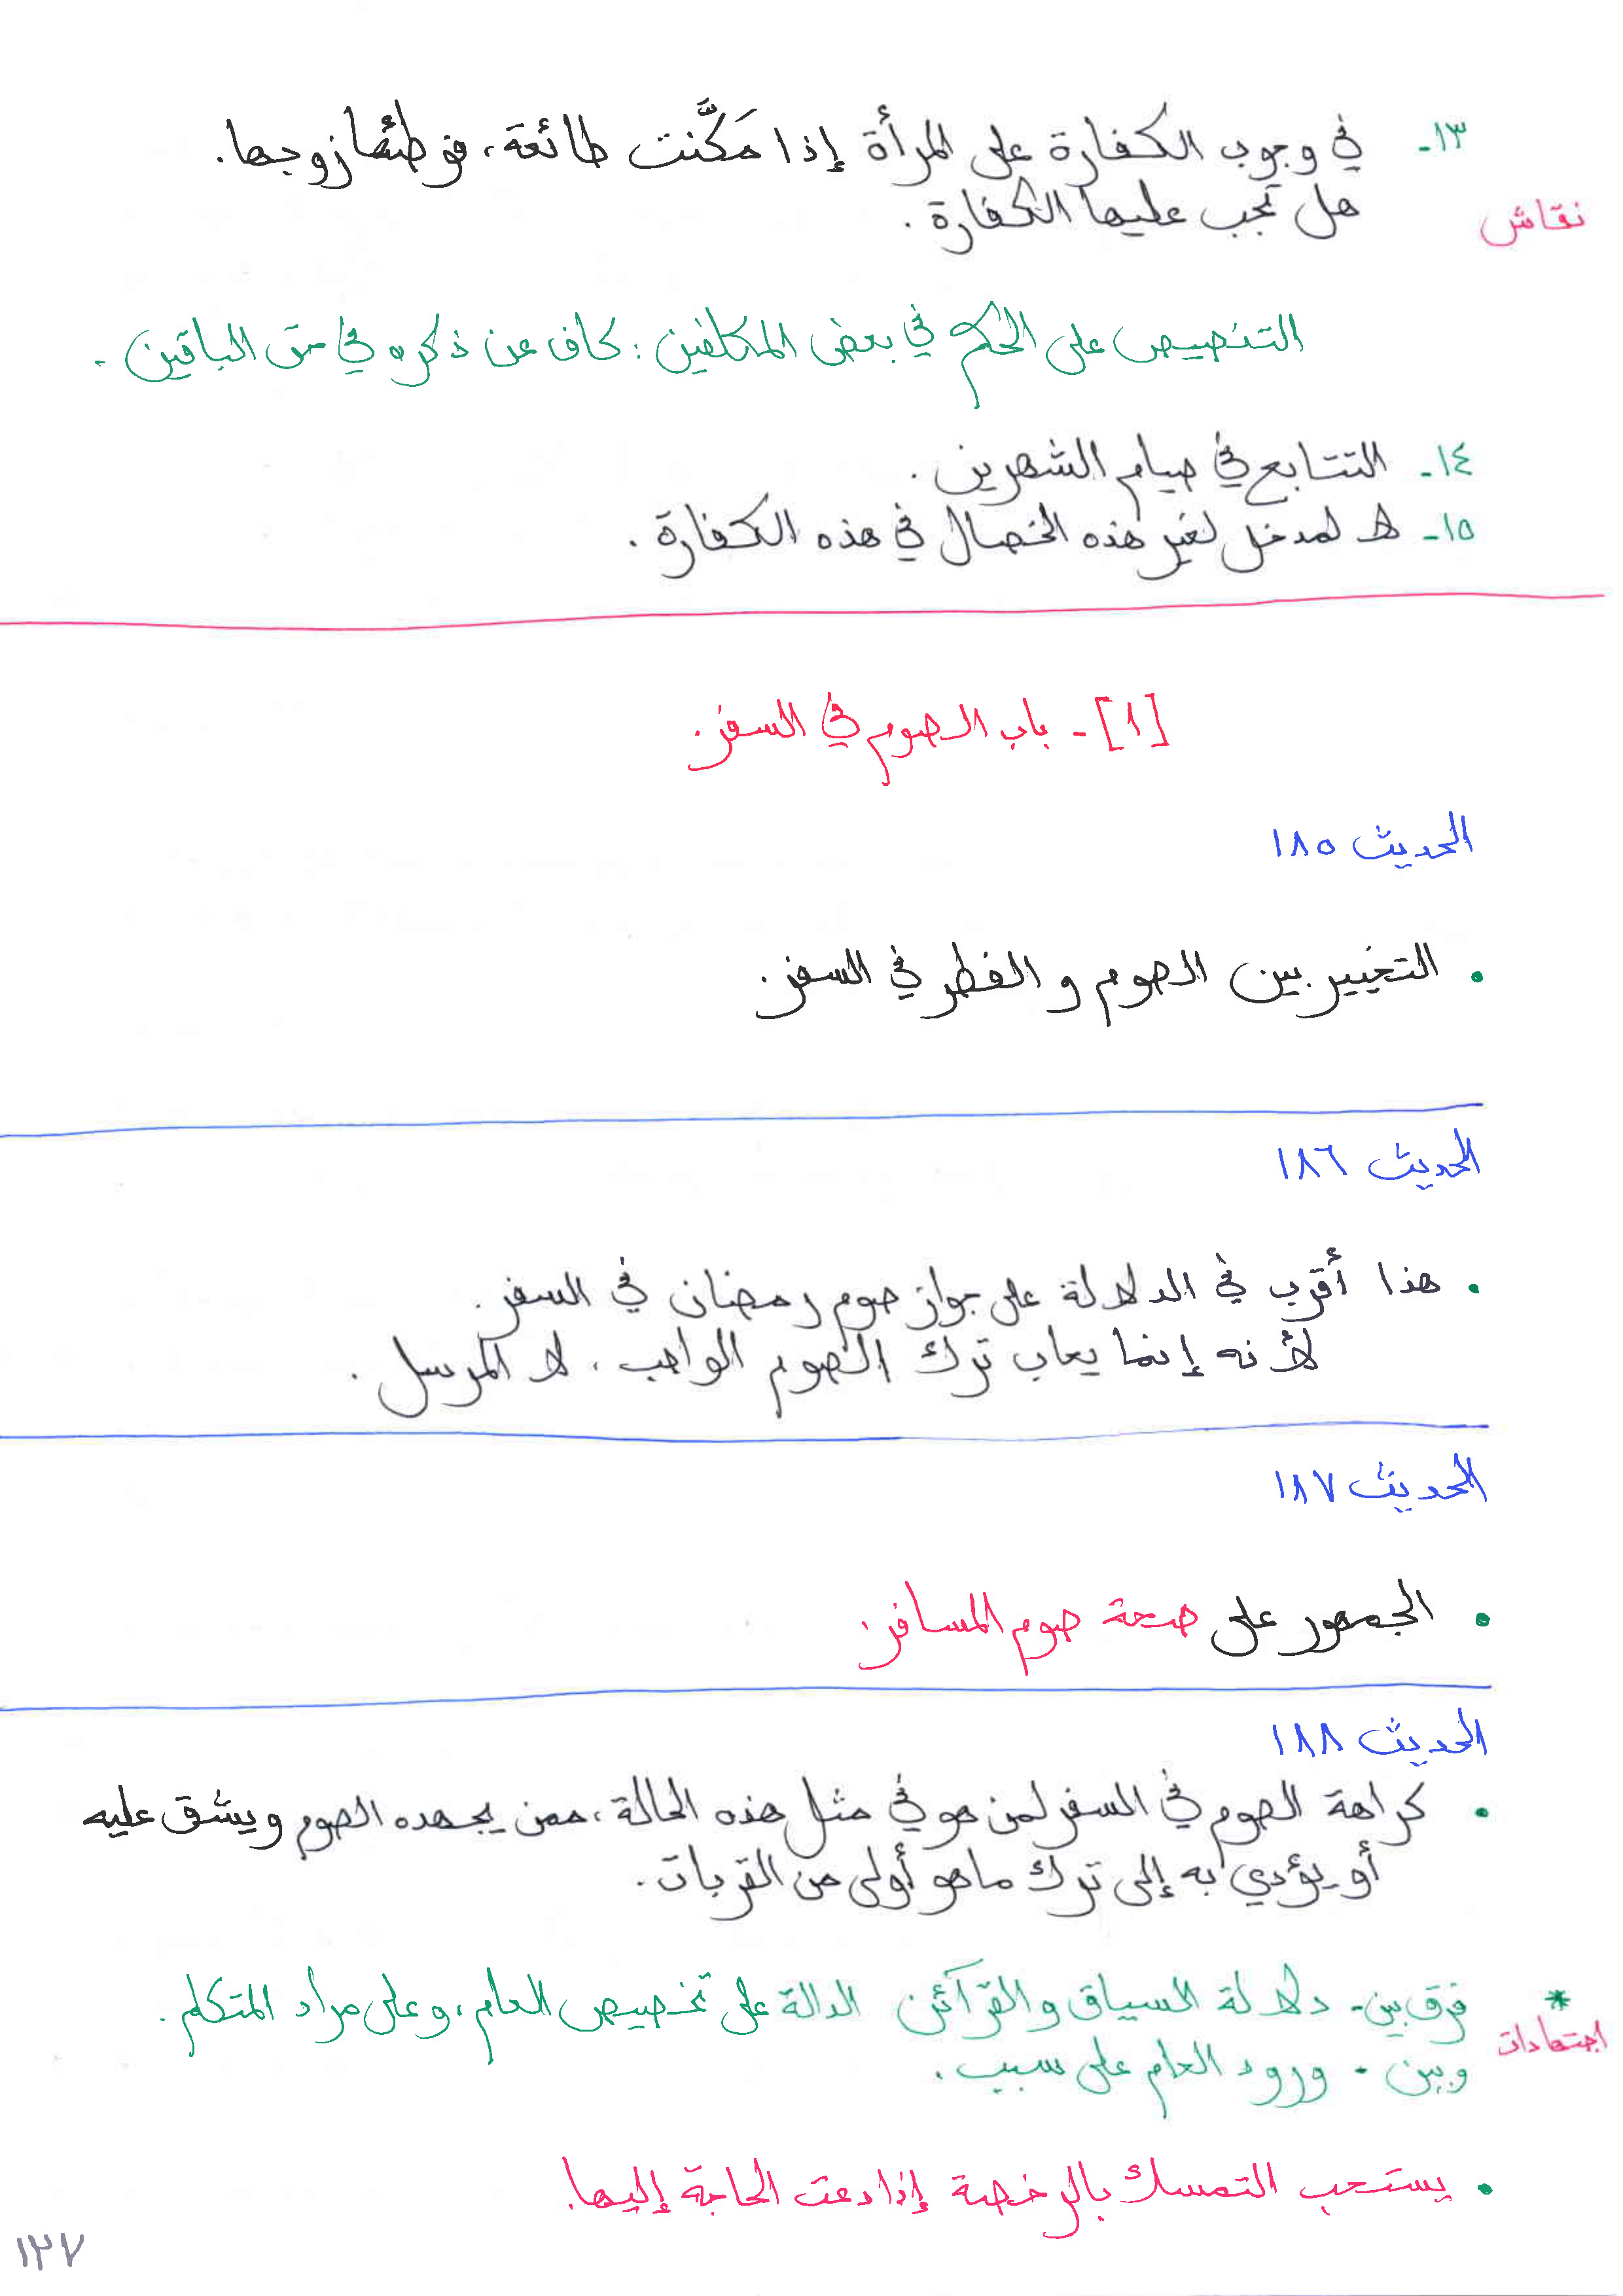 ١٣- في وجوب الكفارة على المرأة إذا مَكَّنت طائعة، فوطئها زوجها.
نقاش هل تجب عليها الكفارة.
التنصيص على الحكم في بعض المكلفين: كاف عن ذكره في حق الباقين.
١٤- التتابع في صيام الشهرين.
١٥- لا مدخل لغير هذه الخصال في هذه الكفارة.
[١]- باب الصوم في السفر.
الحديث ١٨٥
• التخيير بين الصوم والفطر في السفر.
الحديث ١٨٦
• هذا أقرب في الدلالة على جواز صوم رمضان في السفر.
لأنه إنما يعاب ترك الصوم الواجب، لا المرسل.
الحديث ١٨٧
• الجمهور على صحة صوم المسافر.
الحديث ١٨٨
• كراهة الصوم في السفر لمن هو في مثل هذه الحالة، ممن يجهده الصوم ويشق عليه
أو يؤدي به إلى ترك ما هو أولى من القربات.
* فرق بين- دلالة السياق والقرآئن الدالة على تخصيص العام، وعلى مراد المتكلم.
اجتهادات
وبين - ورود العام على سبب.
• يستحب التمسك بالرخصة إذا دعت الحاجة إليها.
١٢٧